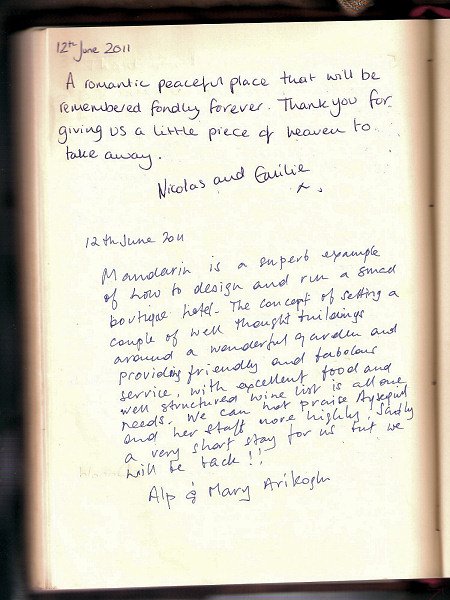 12th June 2011
A romantic peaceful place that will be
remembered fondly forever. Thank you for
giving us a little piece of heaven to
take away.
Nicolas and Emilie
x.
12th June 2011
Mandarin is a superb example
of how to design and run a small
boutique hotel. The concept of setting a
couple of well thought buildings
around a wonderful garden and
providing friendly and fabolous
service, with excellent food and
well structured wine list is all one
needs. We can not praise Aysegul
and her staff more highly, sadly
a very short stay for us but we
will be back!!
Alp & Mary Arikoglu